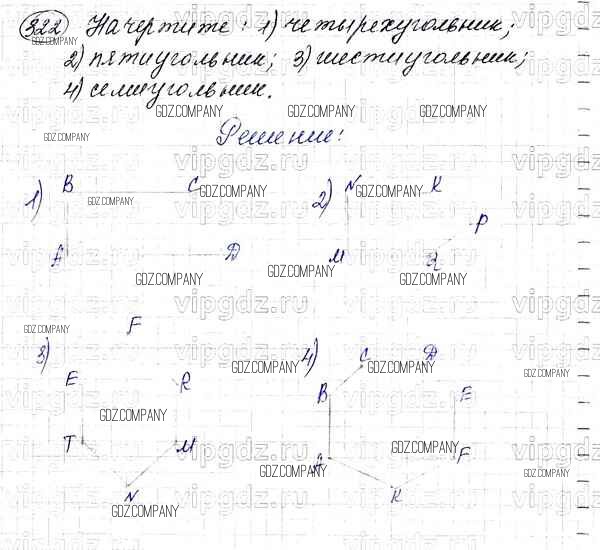 322 Начертите: 1) четырехугольник;
2) пятиугольник; 3) шестиугольник;
4) семиугольник.
Решение!
1) B C
A D
2) N K
P
M R
3) F
E R
T M
N
4) C D
B E
A F
K
GDZ.COMPANY
vipgdz.ru